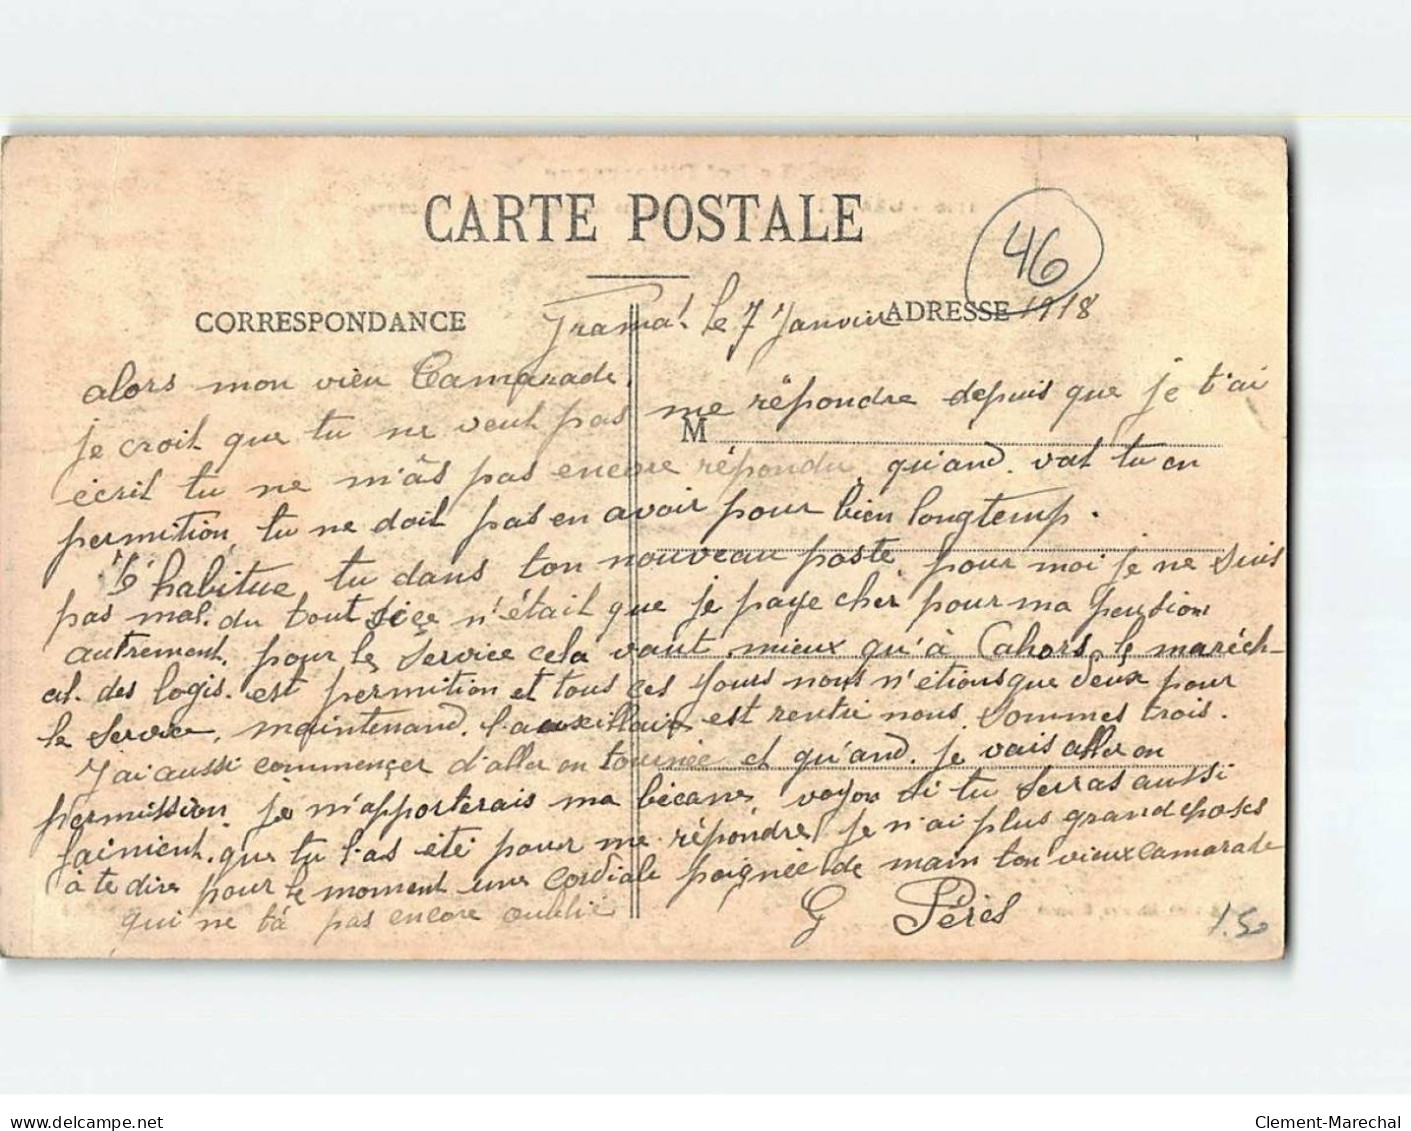 CARTE POSTALE
46
CORRESPONDANCE
ADRESSE
Gramat. le 7 Janvier 1918
alors mon vieu Camarade.
je croit que tu ne veut pas me répondre depuis que je t'ai
M
écrit tu ne m'as pas encore répondu. qu'and. vat tu en
permition, tu ne doit pas en avoir pour bien longtemp.
t'habitue tu dans ton nouveau poste, pour moi je ne suis
pas mal. du tout si ce n'était que je paye cher pour ma pension
autrement. pour le service cela vaut mieux qu'à Cahors, le maréch-
al. des logis. est permition et tous ces Jours nous n'étions que deux pour
le service, maintenand. l'auxillair est rentri nous sommes trois.
J'ai aussi commençer d'aller en tournée et qu'and. je vais aller en
permission, je m'apporterais ma bécane, voyon si tu serras aussi
fainient. que tu l'as été pour me répondre, je n'ai plus grand choses
à te dire pour le moment une cordiale poignée de main ton vieux camarade
qui ne ta pas encore oublié
G Pérés
1.50
delcampe.net
Clement-Marechal